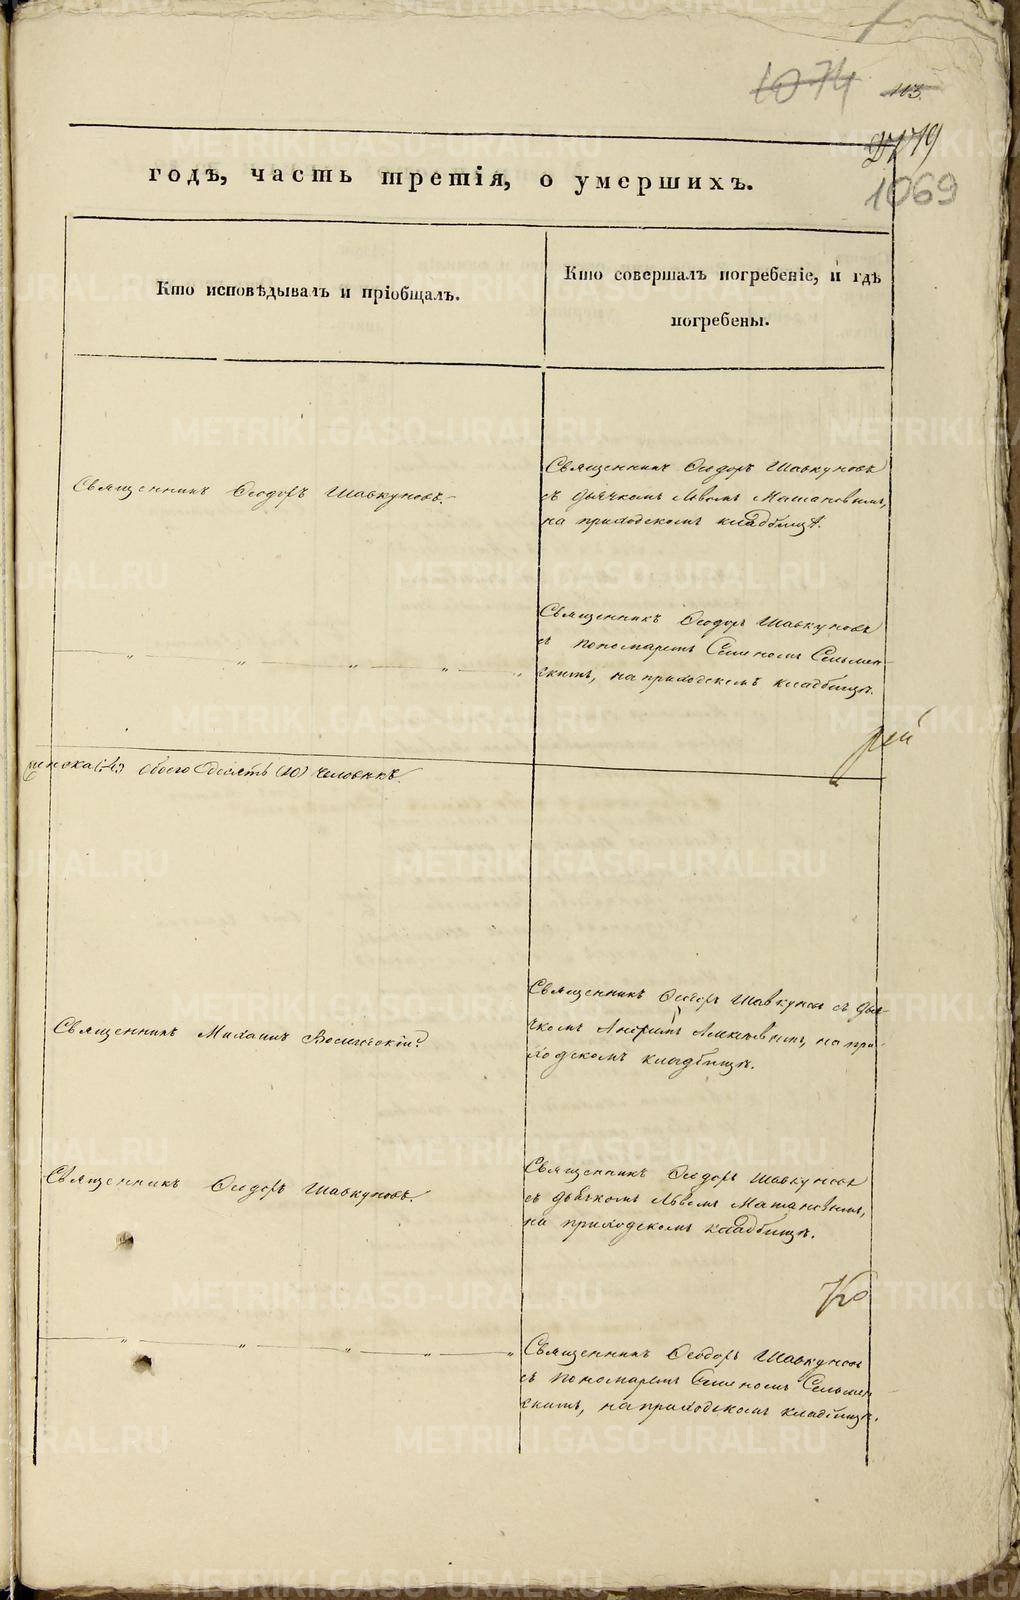 1074 113.
2719
1069
годъ, часть третія, о умершихъ.
Кто исповѣдывалъ и пріобщалъ.
Кто совершалъ погребеніе, и гдѣ
погребены.
Священникъ Ѳеодоръ Шавкуновъ.
Священникъ Ѳеодоръ Шавкуновъ
съ дьячкомъ Львомъ
на приходскомъ кладбищѣ.
Священникъ Ѳеодоръ Шавкуновъ
съ пономаремъ Семеномъ Сельмен-
скимъ, на приходскомъ кладбищѣ.
" " " " "
рей
обоего десять (10) человѣкъ.
Священникъ Михаилъ
Священникъ Ѳеодоръ Шавкуновъ съ дья-
чкомъ на при-
ходскомъ кладбищѣ.
Священникъ Ѳеодоръ Шавкуновъ.
Священникъ Ѳеодоръ Шавкуновъ
съ дьячкомъ Львомъ
на приходскомъ кладбищѣ.
" " " " "
Священникъ Ѳеодоръ Шавкуновъ
съ пономаремъ Семеномъ Сельмен-
скимъ, на приходскомъ кладбищѣ.
METRIKI.GASO-URAL.RU